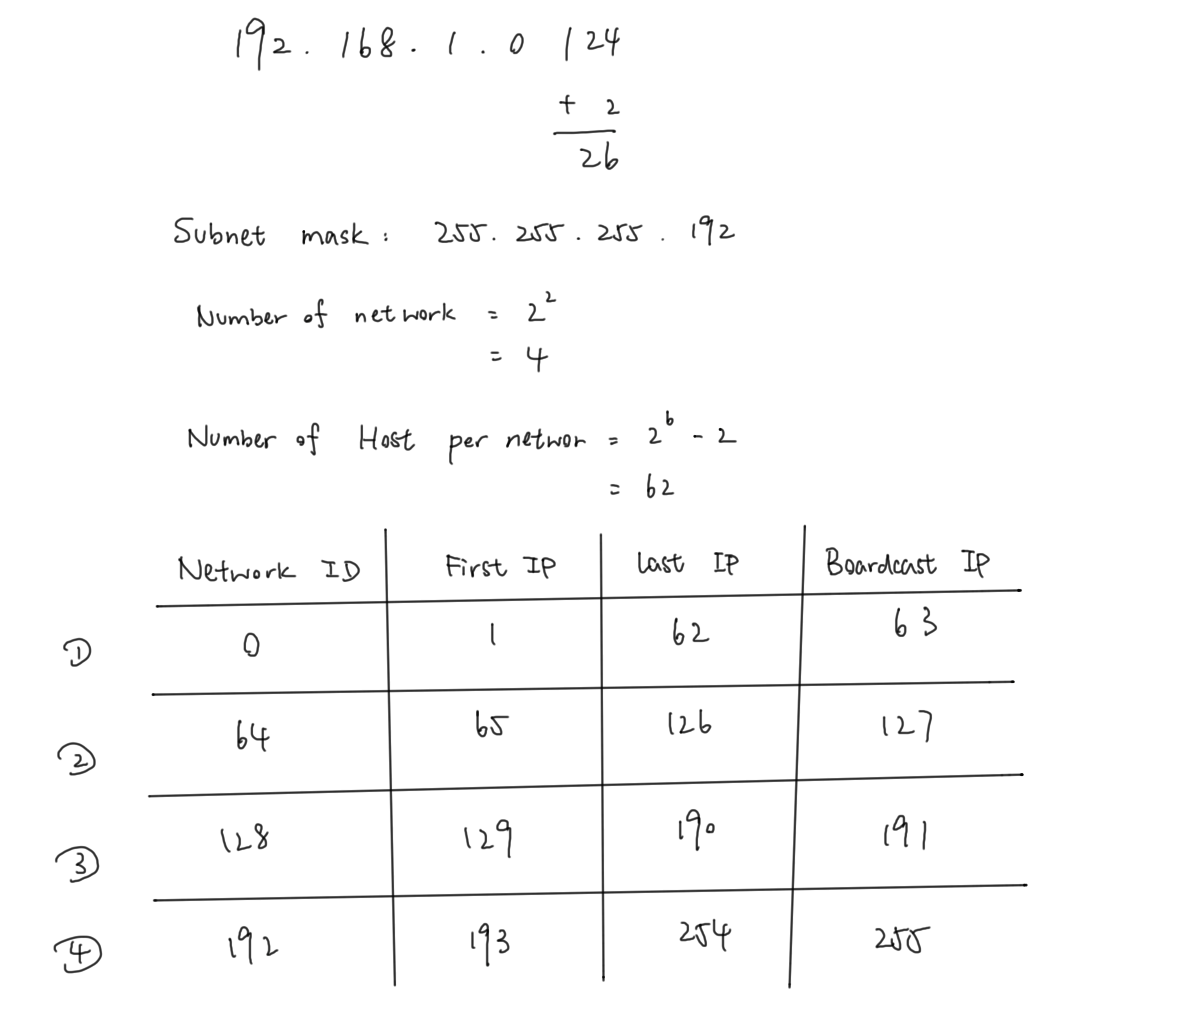 192.168.1.0 /24
+ 2
26
Subnet mask: 255.255.255.192
Number of network = 2²
= 4
Number of Host per networ = 2⁶ - 2
= 62
Network ID First IP Last IP Boardcast IP
① 0 1 62 63
② 64 65 126 127
③ 128 129 190 191
④ 192 193 254 255